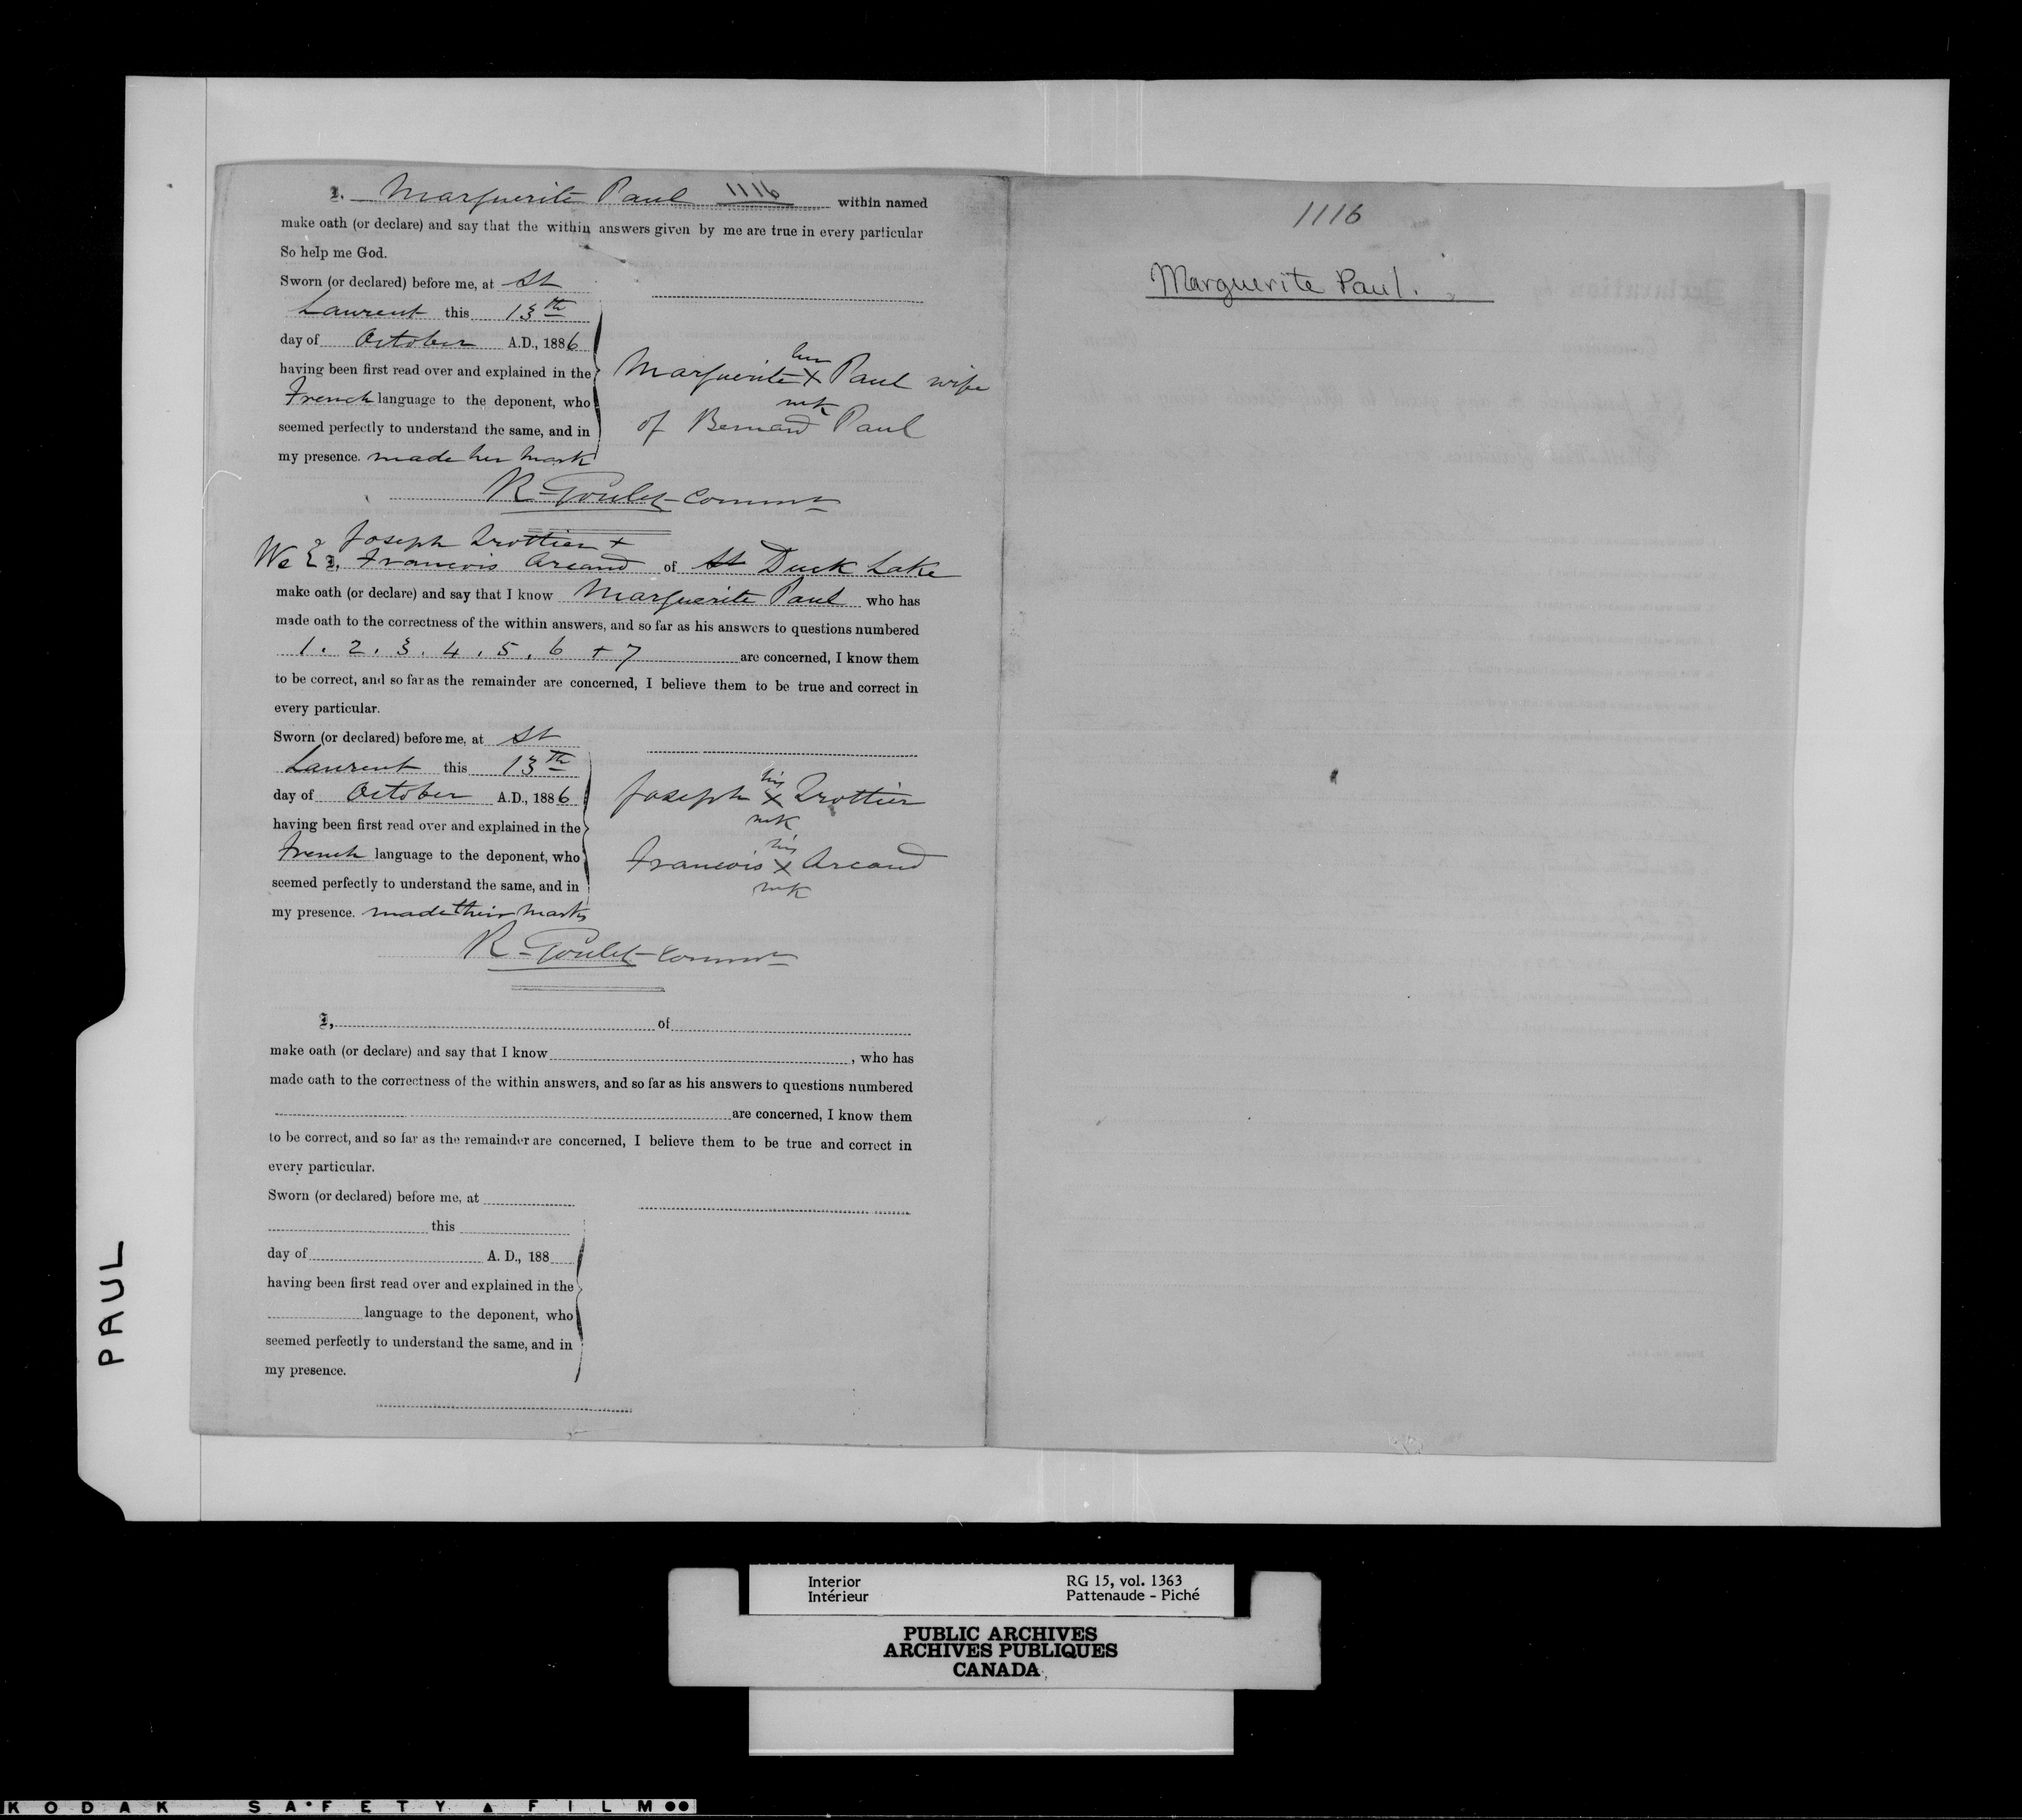 I, Marguerite Paul 1116 within named
make oath (or declare) and say that the within answers given by me are true in every particular
So help me God.
Sworn (or declared) before me, at St
Laurent this 13th
day of October A.D., 1886
having been first read over and explained in the
French language to the deponent, who
seemed perfectly to understand the same, and in
my presence. made her mark
her
Marguerite X Paul wife
mk
of Bernard Paul
R. Goulet Commr
Joseph Trottier +
We I, Francois Arcand of St Duck Lake
make oath (or declare) and say that I know Marguerite Paul who has
made oath to the correctness of the within answers, and so far as his answers to questions numbered
1. 2. 3. 4. 5. 6 + 7 are concerned, I know them
to be correct, and so far as the remainder are concerned, I believe them to be true and correct in
every particular.
Sworn (or declared) before me, at St
Laurent this 13th
day of October A.D., 1886
having been first read over and explained in the
French language to the deponent, who
seemed perfectly to understand the same, and in
my presence. made their marks
his
Joseph X Trottier
mk
his
Francois X Arcand
mk
R. Goulet Commr
I, of
make oath (or declare) and say that I know , who has
made oath to the correctness of the within answers, and so far as his answers to questions numbered
are concerned, I know them
to be correct, and so far as the remainder are concerned, I believe them to be true and correct in
every particular.
Sworn (or declared) before me, at
this
day of A. D., 188
having been first read over and explained in the
language to the deponent, who
seemed perfectly to understand the same, and in
my presence.
1116
Marguerite Paul.
PAUL
Interior
Intérieur
RG 15, vol. 1363
Pattenaude - Piché
PUBLIC ARCHIVES
ARCHIVES PUBLIQUES
CANADA
KODAK SAFETY FILM